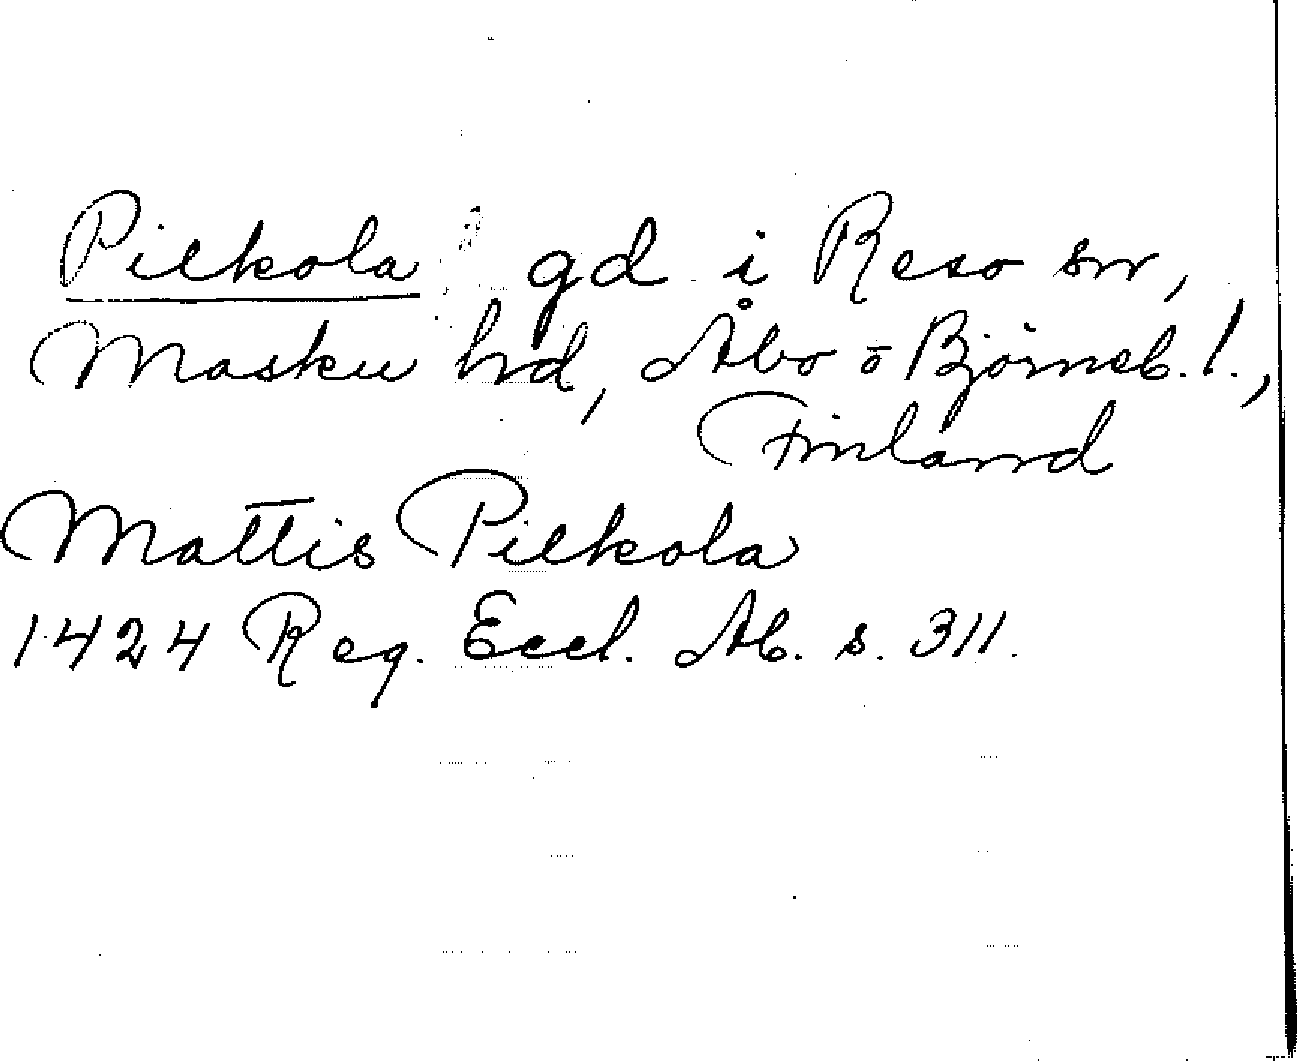 Pilkola gd i Reso sn,
Masku hd, Åbo o Björneb. l.,
Finland
Mattis Pilkola
1424 Reg. Eccl. Ab. s. 311.